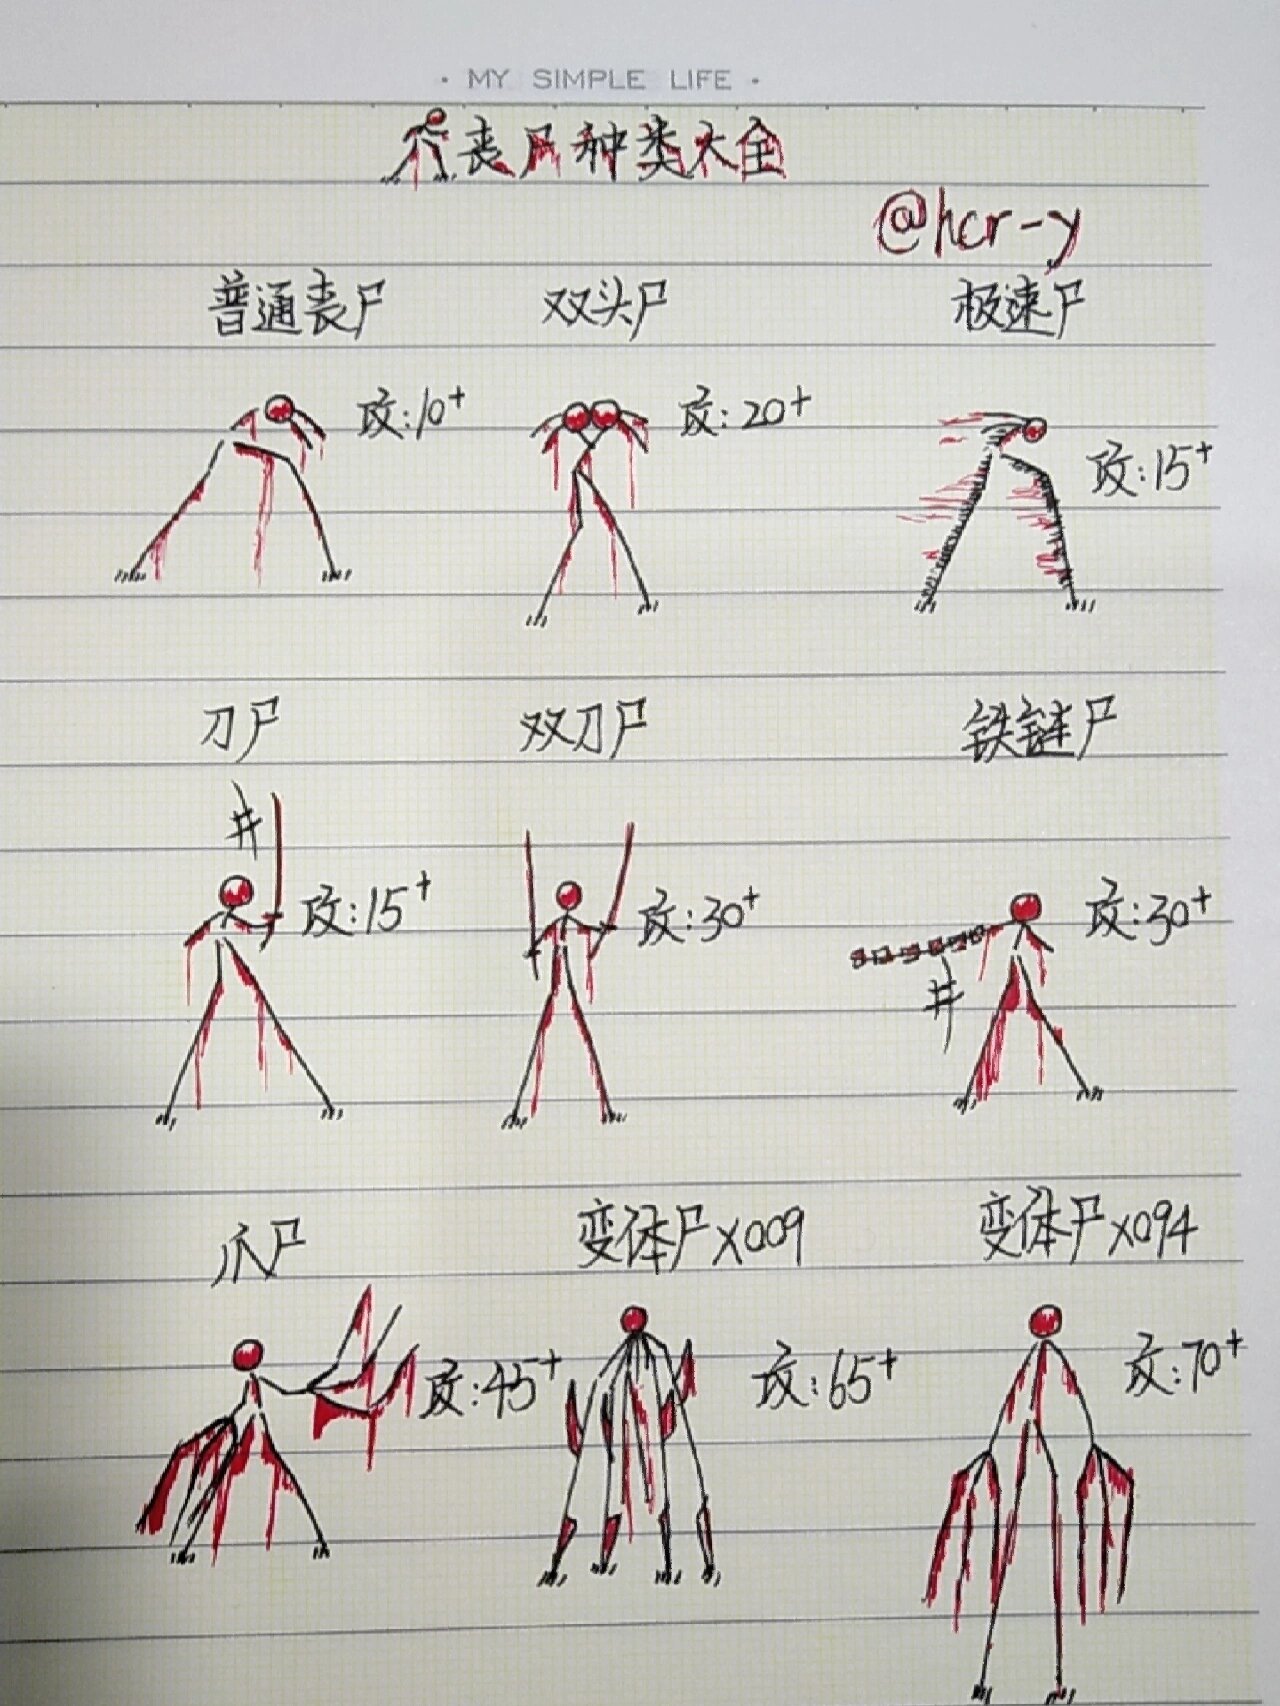 · MY SIMPLE LIFE ·
丧尸种类大全
@hcr-y
普通丧尸 双头尸 极速尸
攻:10+ 攻:20+ 攻:15+
刀尸 双刀尸 铁链尸
攻:15+ 攻:30+ 攻:30+
爪尸 变体尸X009 变体尸X094
攻:45+ 攻:65+ 攻:70+